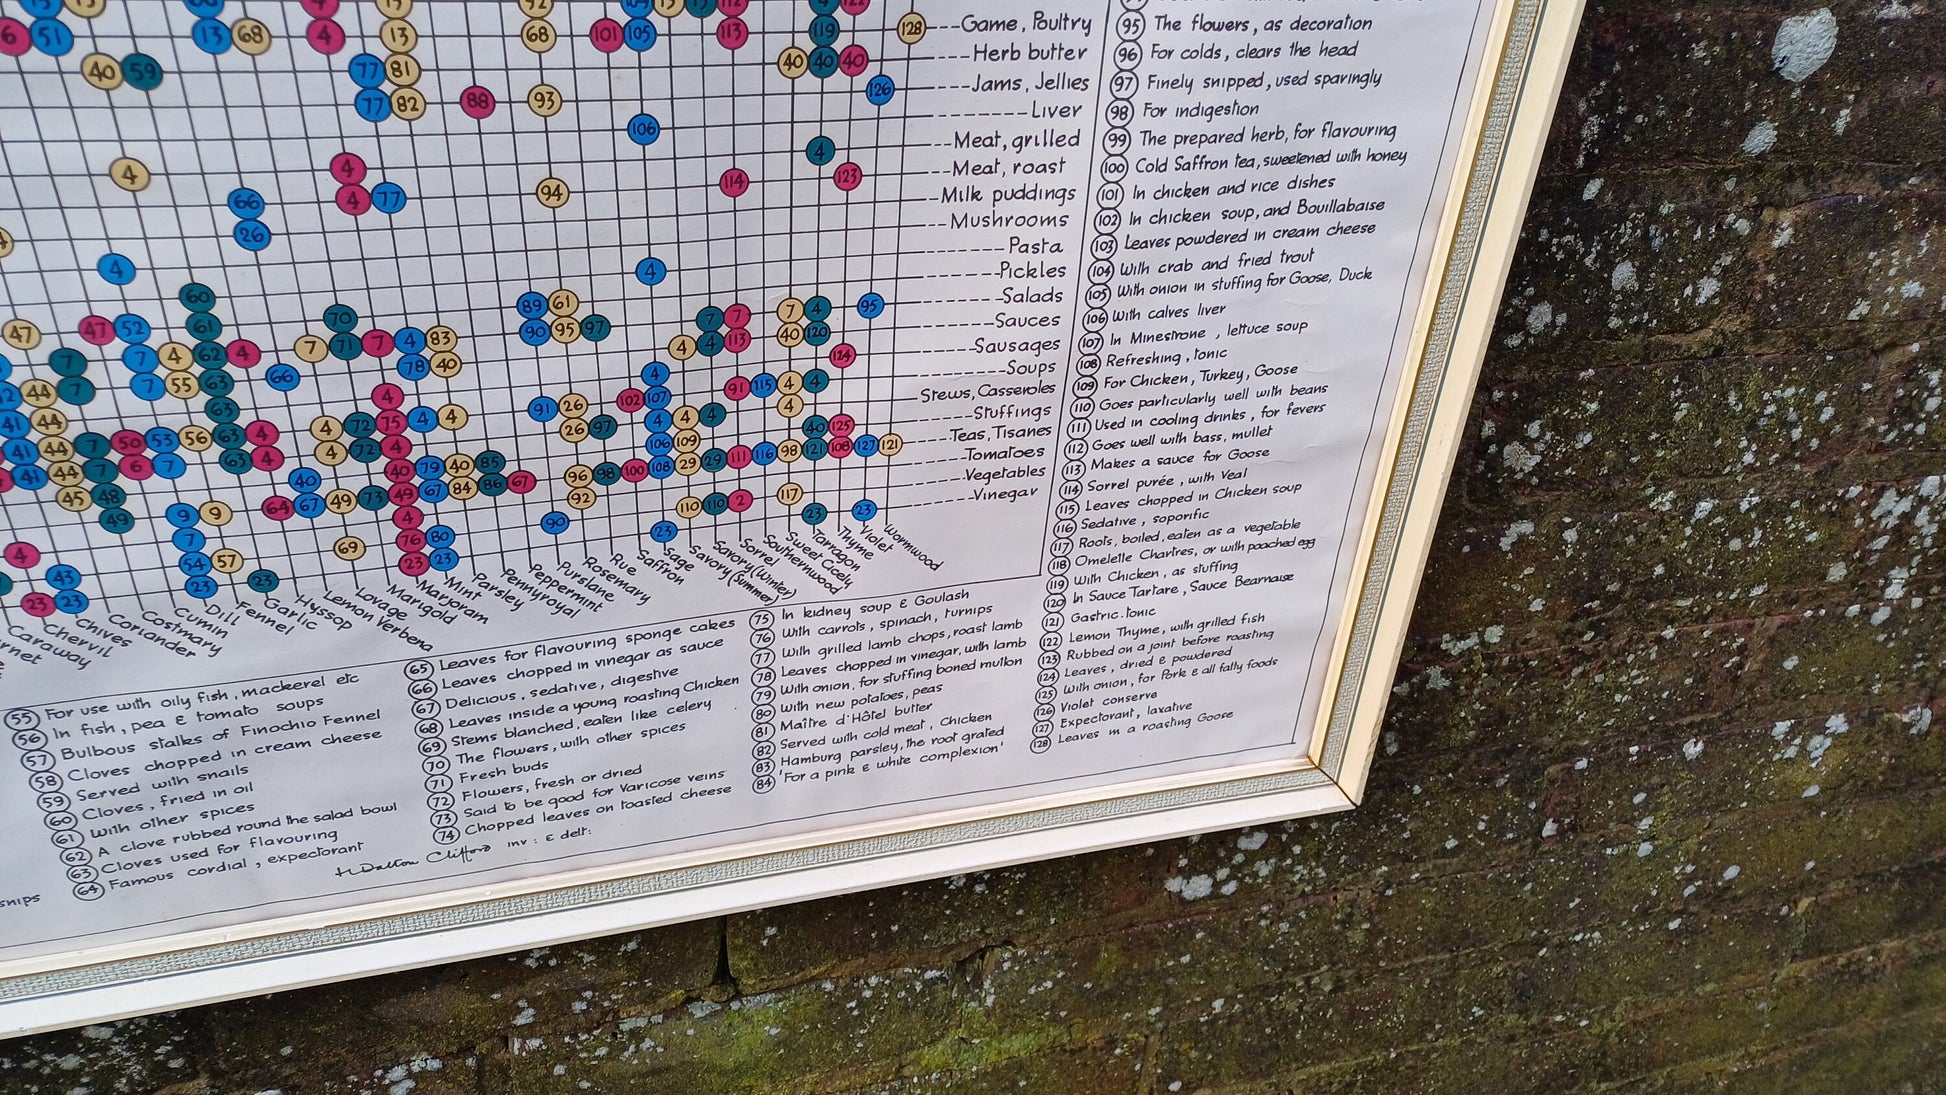 Game, Poultry
Herb butter
Jams, Jellies
Liver
Meat, grilled
Meat, roast
Milk puddings
Mushrooms
Pasta
Pickles
Salads
Sauces
Sausages
Soups
Stews, Casseroles
Stuffings
Teas, Tisanes
Tomatoes
Vegetables
Vinegar
95 The flowers, as decoration
96 For colds, clears the head
97 Finely snipped, used sparingly
98 For indigestion
99 The prepared herb, for flavouring
100 Cold Saffron tea, sweetened with honey
101 In chicken and rice dishes
102 In chicken soup, and Bouillabaise
103 Leaves powdered in cream cheese
104 With crab and fried trout
105 With onion in stuffing for Goose, Duck
106 With calves liver
107 In Minestrone, lettuce soup
108 Refreshing, tonic
109 For Chicken, Turkey, Goose
110 Goes particularly well with beans
111 Used in cooling drinks, for fevers
112 Goes well with bass, mullet
113 Makes a sauce for Goose
114 Sorrel purée, with Veal
115 Leaves chopped in Chicken soup
116 Sedative, soporific
117 Roots, boiled, eaten as a vegetable
118 Omelette Chartres, or with poached egg
119 With Chicken, as stuffing
120 In Sauce Tartare, Sauce Bearnaise
121 Gastric tonic
122 Lemon Thyme, with grilled fish
123 Rubbed on a joint before roasting
124 Leaves, dried & powdered
125 With onion, for Pork & all fatty foods
126 Violet conserve
127 Expectorant, laxative
128 Leaves in a roasting Goose
Caraway
Chervil
Chives
Coriander
Costmary
Cumin
Dill
Fennel
Garlic
Hyssop
Lemon Verbena
Lovage
Marigold
Marjoram
Mint
Parsley
Pennyroyal
Peppermint
Purslane
Rosemary
Rue
Saffron
Sage
Savory (Summer)
Savory (Winter)
Sorrel
Southernwood
Sweet Cicely
Tarragon
Thyme
Violet
Wormwood
55 For use with oily fish, mackerel etc
56 In fish, pea & tomato soups
57 Bulbous stalks of Finochio Fennel
58 Cloves chopped in cream cheese
59 Served with snails
60 Cloves, fried in oil
61 With other spices
62 A clove rubbed round the salad bowl
63 Cloves used for flavouring
64 Famous cordial, expectorant
65 Leaves for flavouring sponge cakes
66 Leaves chopped in vinegar as sauce
67 Delicious, sedative, digestive
68 Leaves inside a young roasting Chicken
69 Stems blanched, eaten like celery
70 The flowers, with other spices
71 Fresh buds
72 Flowers, fresh or dried
73 Said to be good for Varicose veins
74 Chopped leaves on toasted cheese
75 In kidney soup & Goulash
76 With carrots, spinach, turnips
77 With grilled lamb chops, roast lamb
78 Leaves chopped in vinegar, with lamb
79 With onion, for stuffing boned mutton
80 With new potatoes, peas
81 Maître d'Hôtel butter
82 Served with cold meat, Chicken
83 Hamburg parsley, the root grated
84 'For a pink & white complexion'
H Dalton Clifford inv: & delt: